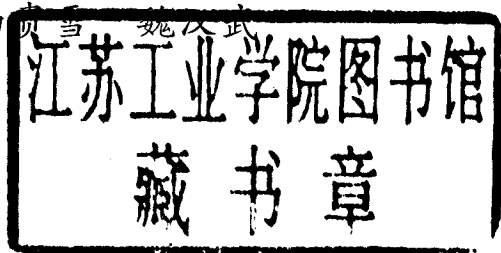 贵雪 魏汉武
江苏工业学院图书馆
藏书章